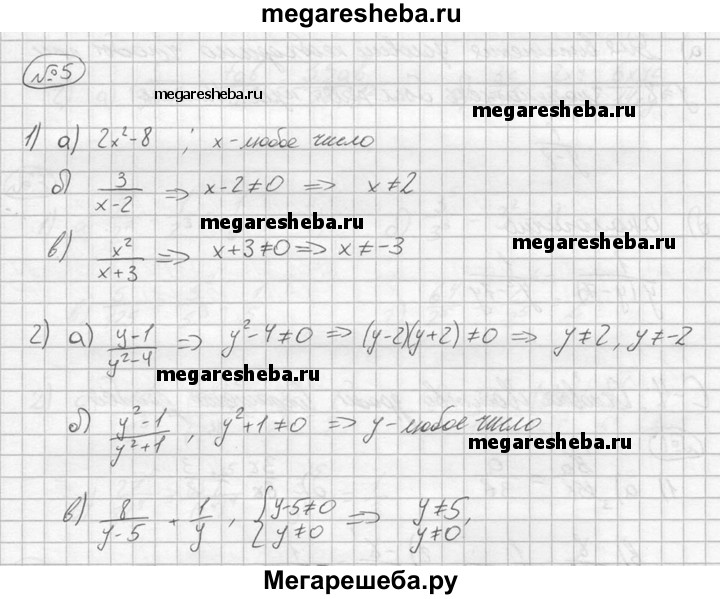 megaresheba.ru
№5
megaresheba.ru
megaresheba.ru
1) а) 2x²-8 ; x-любое число
б) 3/(x-2) ⇒ x-2≠0 ⇒ x≠2
megaresheba.ru
megaresheba.ru
в) x²/(x+3) ⇒ x+3≠0 ⇒ x≠-3
2) а) (y-1)/(y²-4) ⇒ y²-4≠0 ⇒ (y-2)(y+2)≠0 ⇒ y≠2, y≠-2
megaresheba.ru
б) (y²-1)/(y²+1), y²+1≠0 ⇒ y-любое число
megaresheba.ru
в) 8/(y-5) + 1/y, {y-5≠0 ⇒ y≠5,
y≠0 y≠0
Мегарешеба.ру